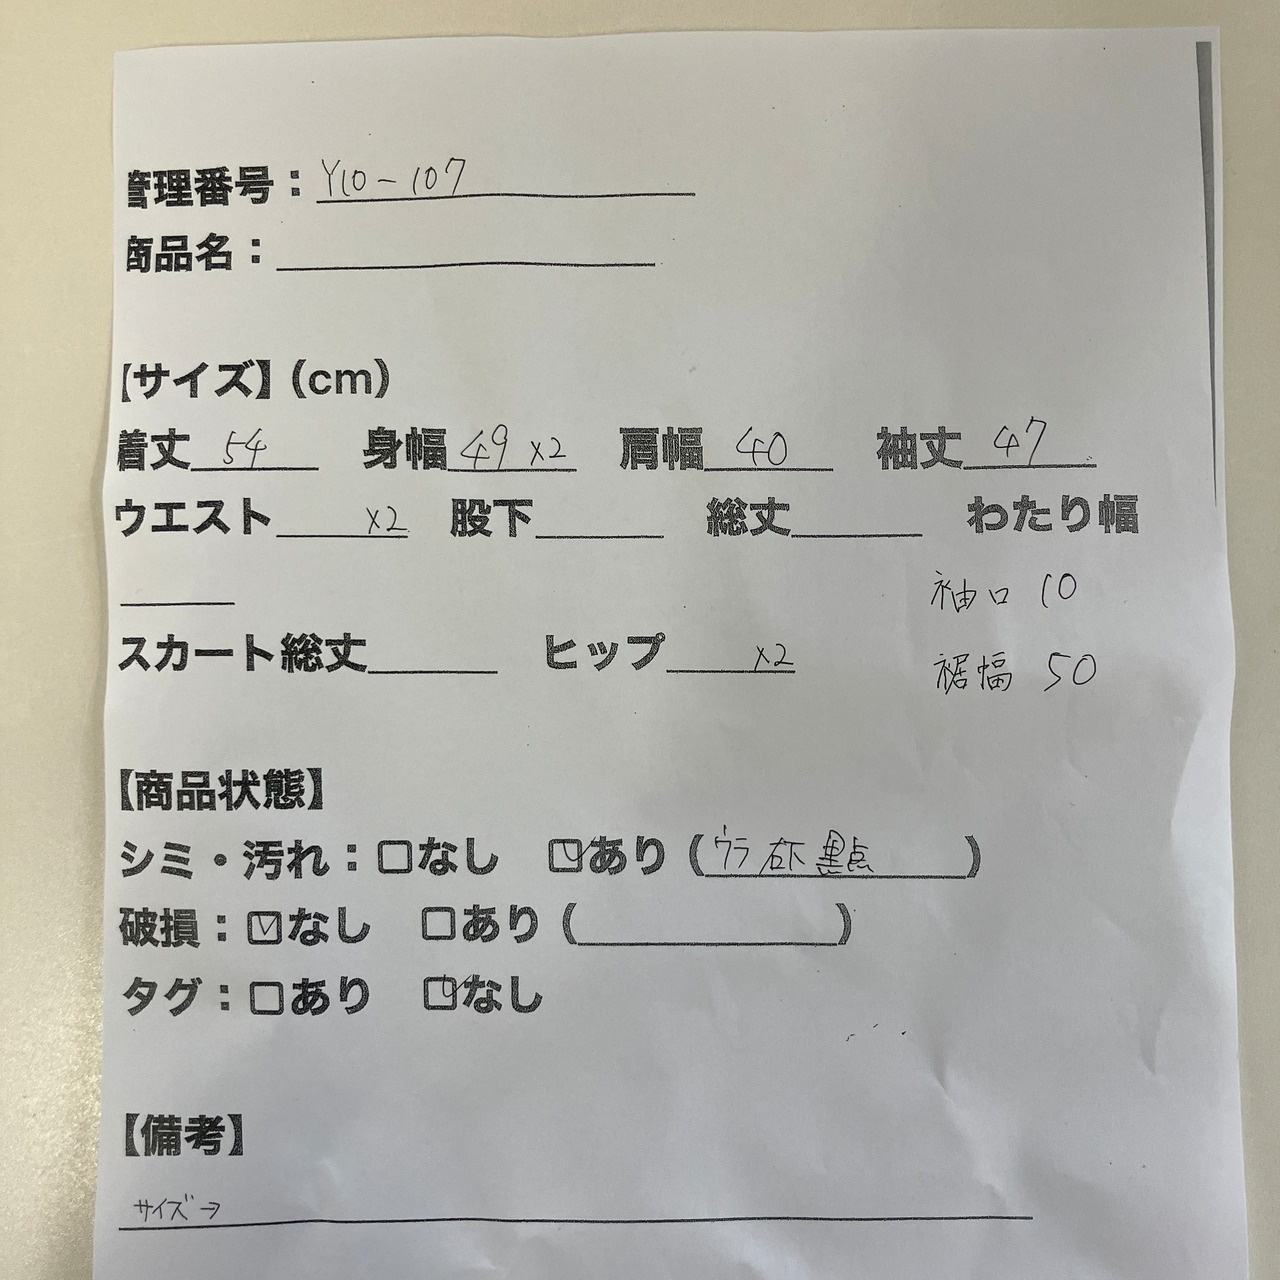 管理番号：Y10-107
商品名：
【サイズ】(cm)
着丈 54 身幅 49 x2 肩幅 40 袖丈 47
ウエスト x2 股下 総丈 わたり幅
袖口 10
スカート総丈 ヒップ x2
裾幅 50
【商品状態】
シミ・汚れ：□なし ☑あり(ウラ右下黒点)
破損：☑なし □あり( )
タグ：□あり ☑なし
【備考】
サイズ→